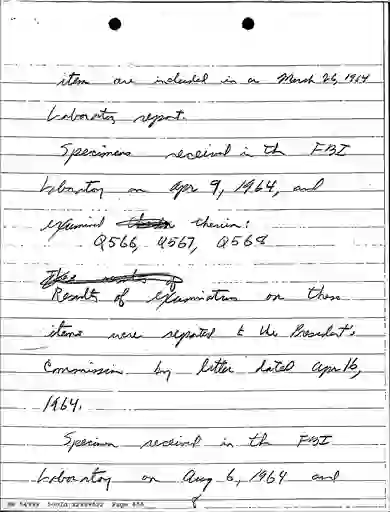 item are included in a March 26, 1964
Laboratory report.
Specimens received in the FBI
Laboratory on Apr 9, 1964, and
examined therein:
Q566, Q567, Q568
The results of
Results of examination on these
items were reported to the President's
Commission by letter dated Apr 16,
1964.
Specimen received in the FBI
Laboratory on Aug 6, 1964 and